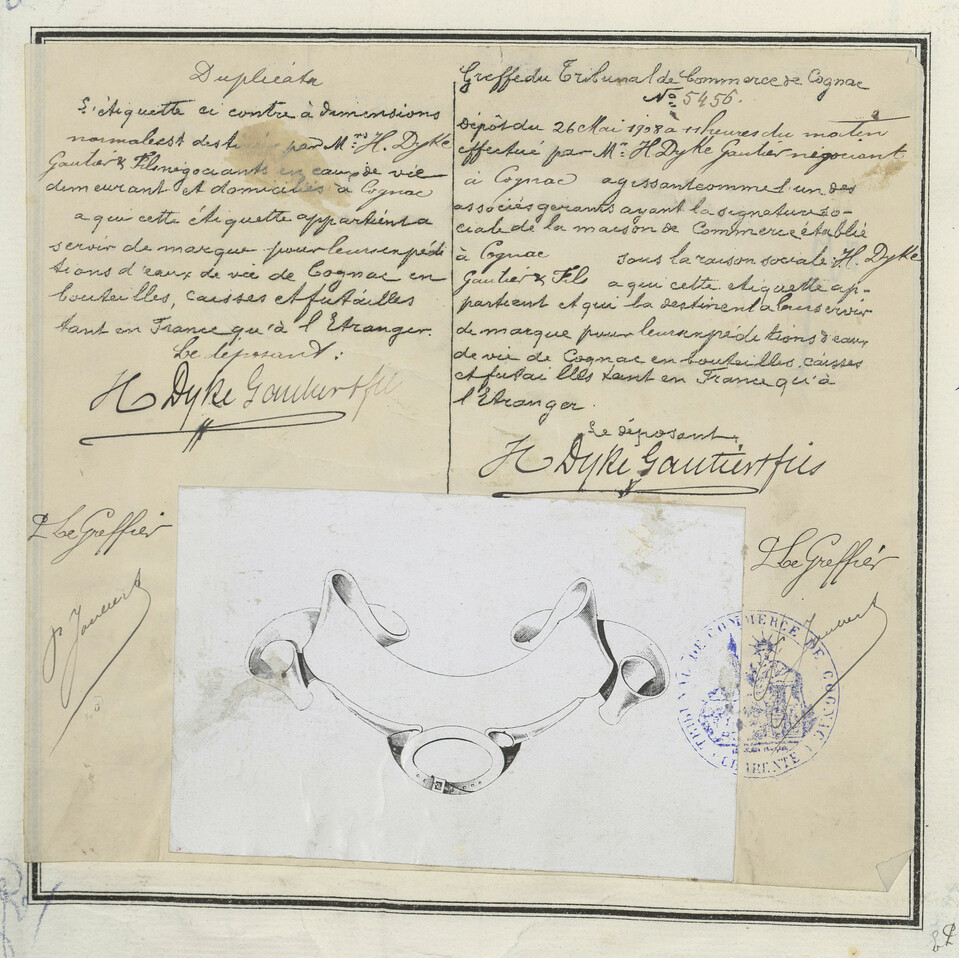 Duplicata
L'étiquette ci contre à dimensions
normales est destinée par Mrs H. Dyke
Gautier & Fils négociants en eaux de vie
demeurant et domiciliés à Cognac
a qui cette étiquette appartient a
servir de marque pour leurs expédi
tions d'eaux de vie de Cognac en
bouteilles, caisses et futailles
tant en France qu'à l'Etranger.
Le déposant:
H Dyke Gautier & fils
P Le Greffier
Greffe du Tribunal de Commerce de Cognac
No 5456.
Dépôt du 26 Mai 1908 à 11 heures du matin
effectué par Mr H Dyke Gautier négociant
à Cognac agissant comme l'un des
associés gerants ayant la signature so-
ciale de la maison de Commerce établie
à Cognac sous la raison sociale: H. Dyke
Gautier & Fils a qui cette etiquette ap-
partient et qui la destinent a leur servir
de marque pour leurs expéditions d'eaux
de vie de Cognac en bouteilles, caisses
et futailles tant en France qu'à
l'Etranger.
Le déposant,
H Dyke Gautier & fils
P Le Greffier
TRIBUNAL DE COMMERCE DE COGNAC
CHARENTE